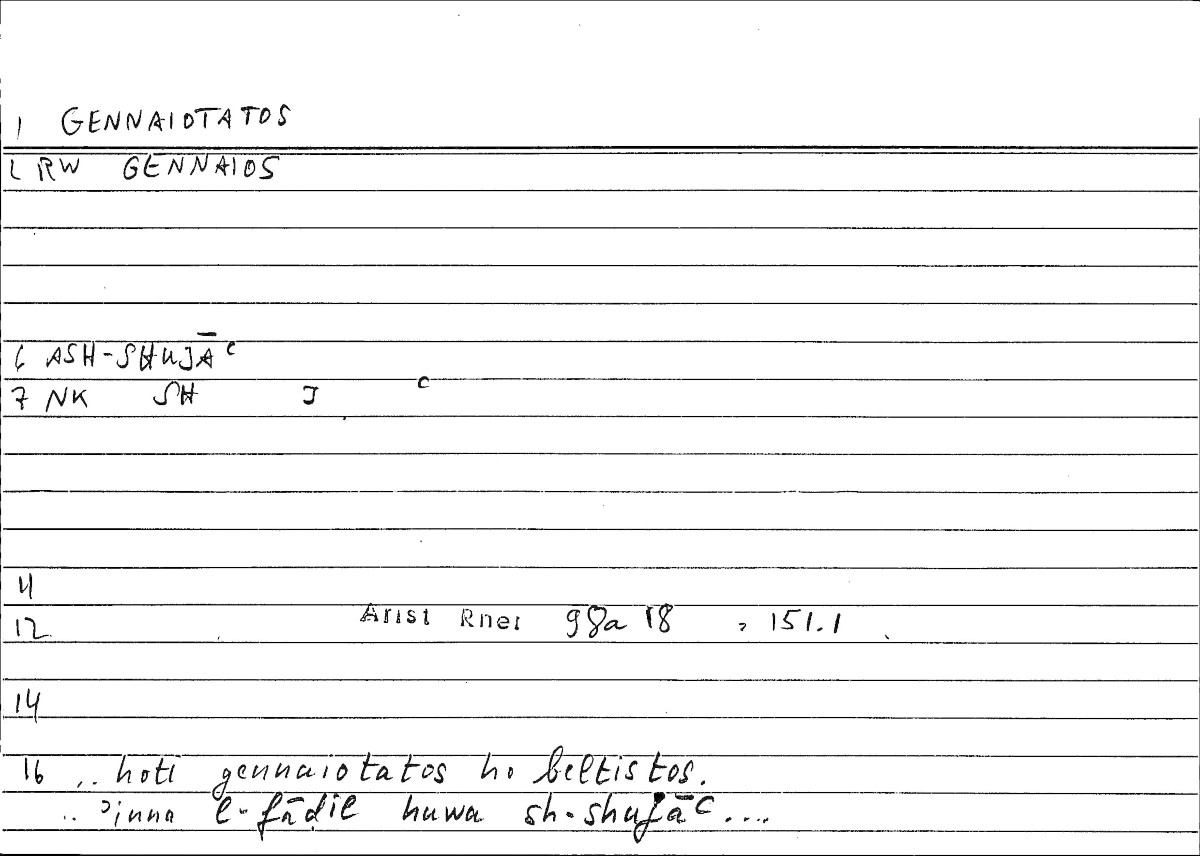 1 GENNAIOTATOS
2 RW GENNAIOS
6 ASH-SHUJĀʿ
7 NK SH J ʿ
11
12 Arist Rhet 98a 18 = 151.1
14
16 .. hoti gennaiotatos ho beltistos.
.. ʾinna l-fāḍil huwa sh-shujāʿ ....